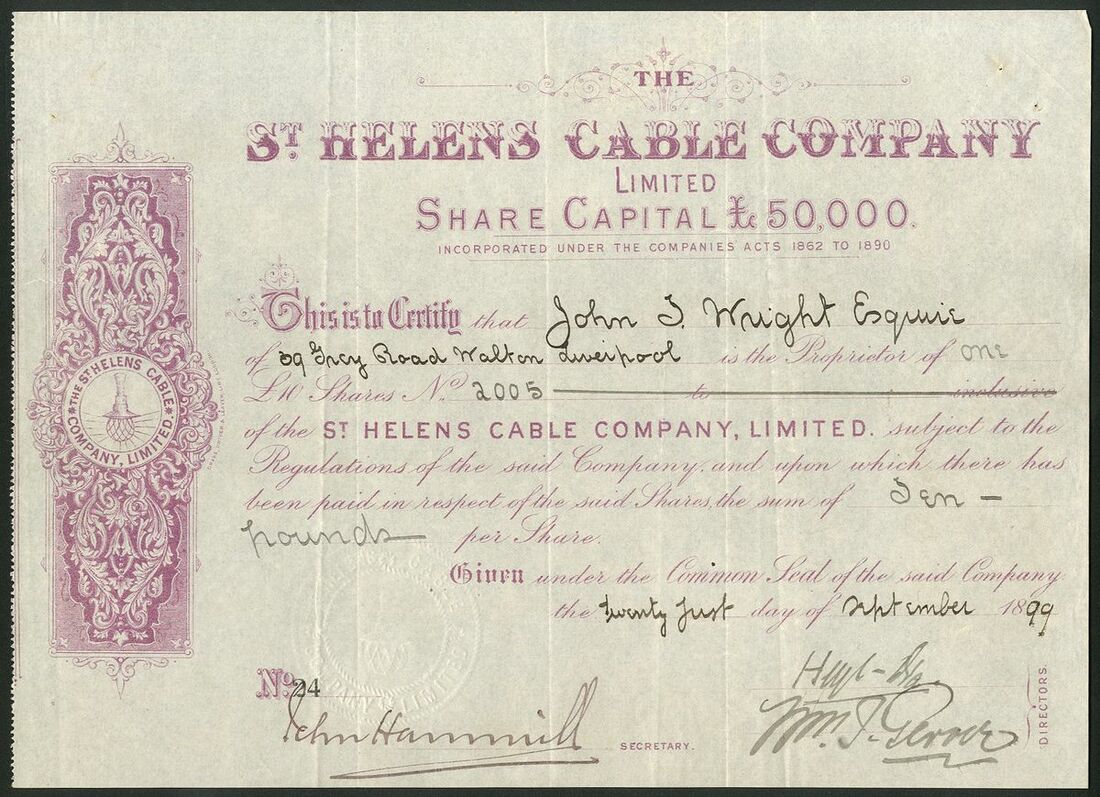 THE
ST. HELENS CABLE COMPANY
LIMITED
SHARE CAPITAL £50,000.
INCORPORATED UNDER THE COMPANIES ACTS 1862 TO 1890
This is to Certify that John T. Wright Esquire
of 39 Grey Road Walton Liverpool is the Proprietor of one
£10 Shares No. 2005 to inclusive
of the ST HELENS CABLE COMPANY, LIMITED. subject to the
Regulations of the said Company, and upon which there has
been paid in respect of the said Shares, the sum of Ten -
pounds per Share.
Given under the Common Seal of the said Company.
the Twenty first day of September 1899
THE ST HELENS CABLE COMPANY, LIMITED.
No. 24
John Hammill SECRETARY.
DIRECTORS.